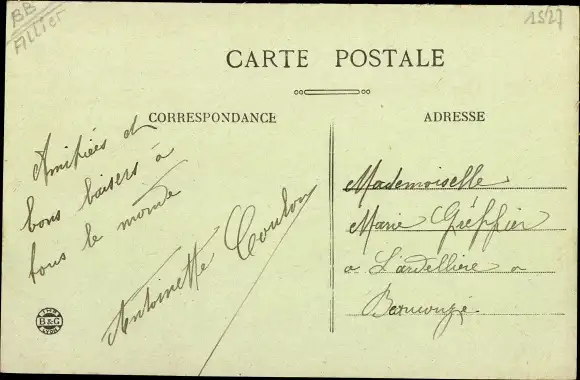 BB
Allier
1527
CARTE POSTALE
CORRESPONDANCE
ADRESSE
Amitiées et
bons baisers à
tous le monde
Antoinette Coulon
Mademoiselle
Marie Greffier
a L'ardellière a
B&G
LYON